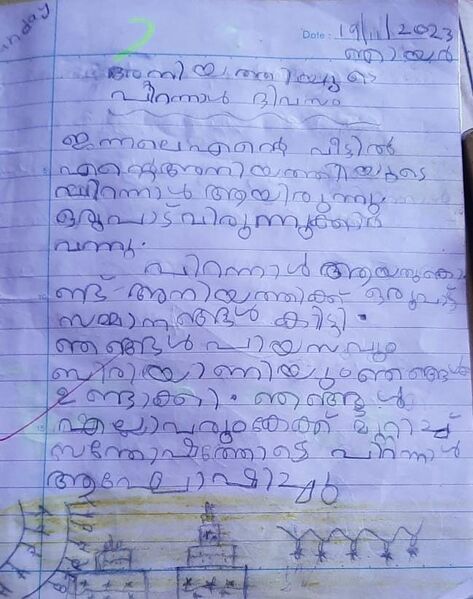 unday
Date: 19/11/2023
ഞായർ
അനിയത്തിയുടെ
പിറന്നാൾ ദിവസം
ഇന്നലെ എന്റെ വീട്ടിൽ
എന്റെ അനിയത്തിയുടെ
പിറന്നാൾ ആയിരുന്നു.
ഒരുപാട് വിരുന്നുക്കാർ
വന്നു.
പിറന്നാൾ ആയതുകൊ
ണ്ട് അനിയത്തിക്ക് ഒരുപാട്
സമ്മാനങ്ങൾ കിട്ടി.
ഞങ്ങൾ പായസവും
ബിരിയാണിയും ഞങ്ങൾ
ഉണ്ടാക്കി. ഞങ്ങൾ
എല്ലാവരും കേക്ക് മുറിച്ച്
സന്തോഷത്തോടെ പിറന്നാൾ
ആഘോഷിച്ചു